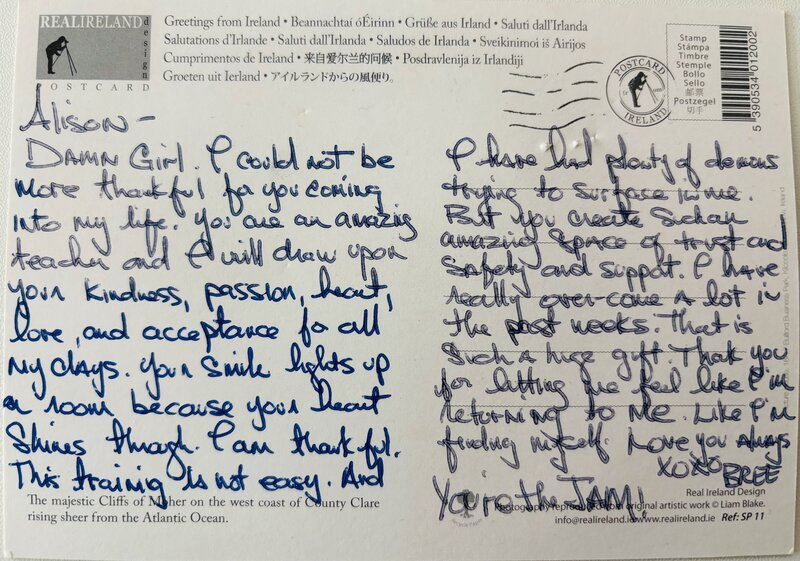 REALIRELAND
design
POSTCARD
Greetings from Ireland • Beannachtaí óÉirinn • Grüße aus Irland • Saluti dall'Irlanda
Salutations d'Irlande • Saluti dall'Irlanda • Saludos de Irlanda • Sveikinimoi iš Airijos
Cumprimentos de Ireland • 来自爱尔兰的问候 • Posdravlenija iz Irlandiji
Groeten uit Ierland • アイルランドからの風便り。
POSTCARD
IRELAND
Stamp
Stámpa
Timbre
Stemple
Bollo
Sello
邮票
Postzegel
切手
5 390534 012002
Alison –
DAMN Girl. I could not be
more thankful for you coming
into my life. You are an amazing
teacher and I will draw upon
your kindness, passion, heart,
love, and acceptance for all
my days. Your smile lights up
a room because your heart
shines through. I am thankful.
This training is not easy. And
I have had plenty of demons
trying to surface in me.
But you create such an
amazing space of trust and
safety and support. I have
really over-come a lot in
the past weeks. That is
such a huge gift. Thank you
for letting me feel like I'm
returning to me. Like I'm
finding myself. Love you always
XOXO BREE
You're the JAM!
The majestic Cliffs of Moher on the west coast of County Clare
rising sheer from the Atlantic Ocean.
Real Ireland Design
Photography reproduced from original artistic work © Liam Blake.
info@realireland.ie www.realireland.ie Ref: SP 11